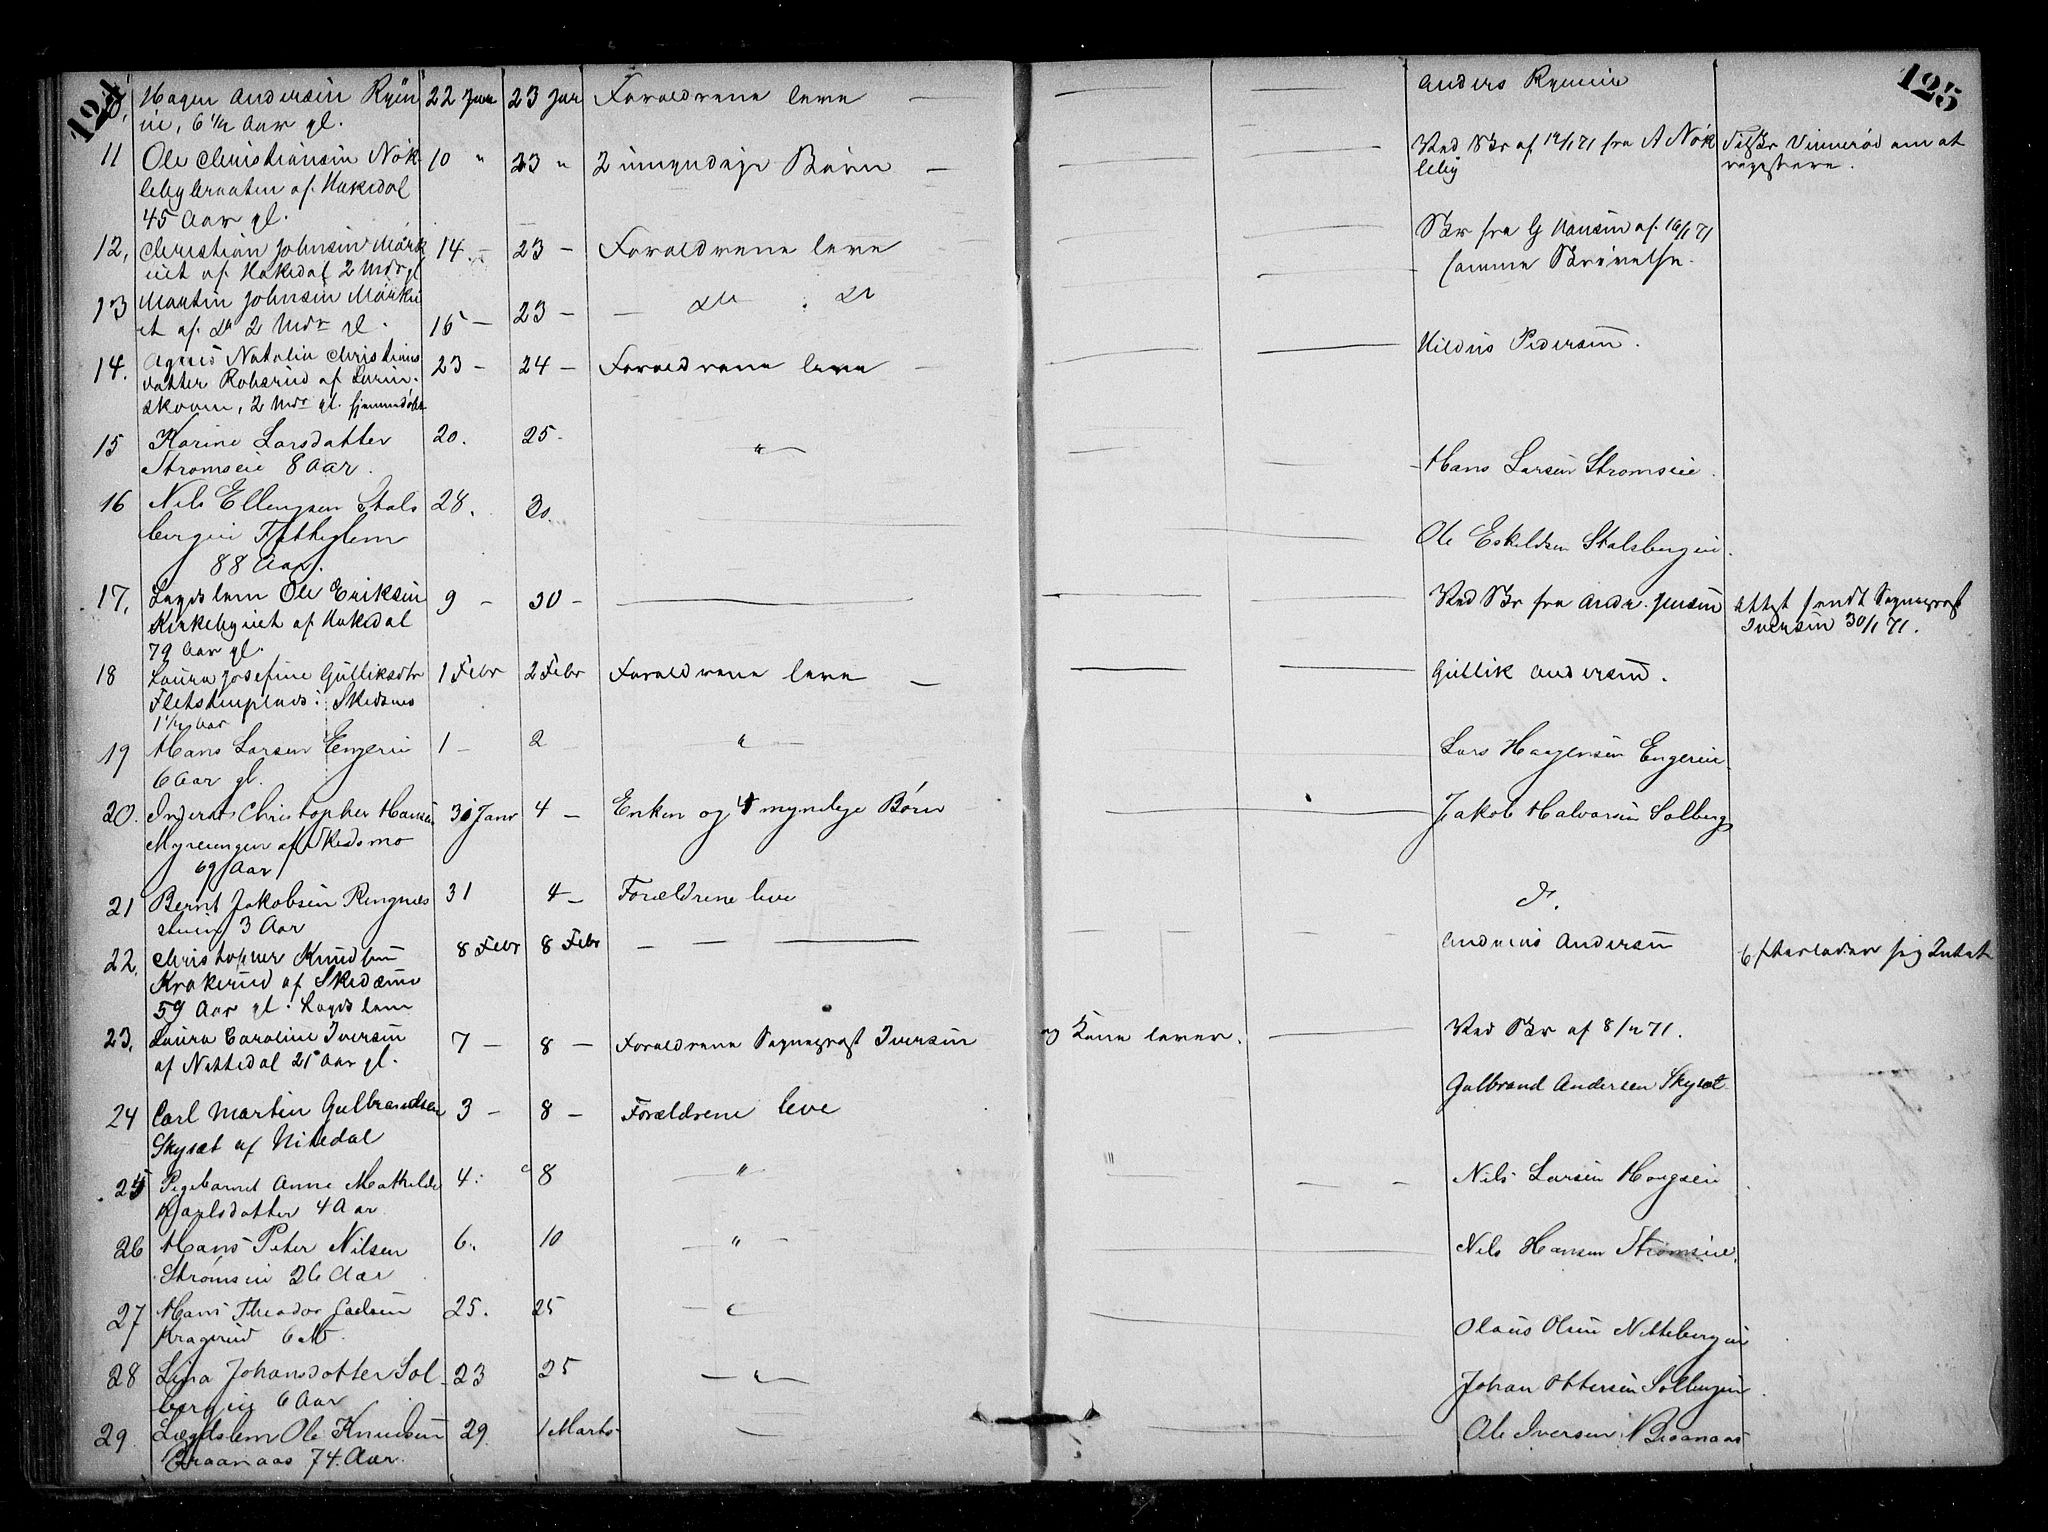 124
125
Hagen Andersen Ryen
ie, 6 1/2 Aar gl.
22 Janr 23 Jan Forældrene leve — Anders Ryeneie
11 Ole Christiansen Nøk
lebybraaten af Hakedal
45 Aar gl.
10 " 23 " 2 umyndige Børn — Ved Skr af 12/1 71 fra A Nøk
leby
Skr om at
registrere.
12, Christian Johnsen Mørk
eiet af Hakedal 2 Mdr gl
14 — 23 — Forældrene leve Skr fra G Hansen af 16/1 71
samme Skrivelse.
13 Martin Johnsen Mørk
et af do 2 Mdr gl.
15 — 23 — do do
14. Agnes Natalie Christians
datter Robsrud af Lørin
skoven, 2 Mdr gl. hjemmedøbt
23 — 24 — Forældrene leve Hildus Pedersen.
15 Karine Larsdatter
Strømseie 8 Aar.
20. 25. " Hans Larsen Strømseie.
16 Nils Ellengsen Stals
bergeie Fattiglem
88 Aar.
28. 30. Ole Eskildsen Stalsbergeie.
17, Lægdslem Ole Eriksen
Kirkebyeiet af Hakedal
79 Aar gl.
9 — 30 — Ved Skr fra Andr. Jensen Attest sendt Sogneprest
Iversen 30/1 71.
18 Laura Josefine Gulliksdtr
Fletstenplads i Skedsmo
1 1/2 Aar
1 Febr 2 Febr Forældrene leve — Gullik Andersen.
19 Hans Larsen Engerie
6 Aar gl.
1 — 2 " — Lars Haagensen Engereie
20. Inderst Christopher Hansen
Myreengen af Skedsmo
69 Aar
31 Janr 4 — Enken og 4 myndige Børn Jakob Halvorsen Solberg
21 Bernt Jakobsen Ringnæs
stuen 3 Aar
31 4 — Forældrene leve d.
22, Christopher Knudsen
Krokerud af Skedsmo
59 Aar gl. Lægdslem
8 Febr 8 Febr — — — Andreas Andersen Efterlader sig Intet
23, Laura Caroline Iversen
af Nittedal 25 Aar gl.
7 — 8 — Forældrene Sogneprest Iversen og Kone lever. Ved Skr af 8/2 71.
24 Carl Martin Gulbrandsen
Skysæt af Nitedal
3 — 8 — Forældrene leve Gulbrand Andersen Skysæt
25 Pigebarnet Anne Mathilde
Karlsdatter 4 Aar
4. 8 " Nils Larsen Haugseie
26 Hans Peter Nilsen
Strømseie 26 Aar
6. 10 " Nils Hansen Strømseie.
27 Hans Theodor
Kragerud 6 M.
25. 25 " Olaus Olsen Nittebergeie
28 Lina Johansdatter Sol
bergeie 6 Aar
23 25 — " — Johan Ottersen Solbergeie
29. Lægdslem Ole Knudsen
Braanaas 74. Aar.
29. 1 Marts Ole Iversen Braanaas